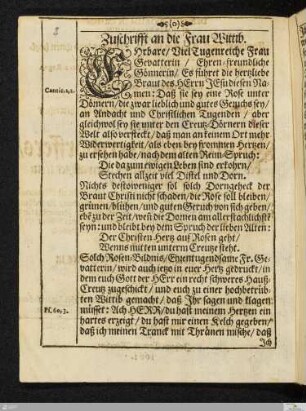 (o)
Zuschrifft an die Frau Wittib.
EHrbare/ Viel Tugenreiche Frau
Gevatterin/ Ehren-freundliche
Gönnerin/ Es führet die hertzliebe
Braut des HErrn JEsu diesen Na-
men: Daß sie sey eine Rose unter
Dörnern/ die zwar lieblich und gutes Geruchs sey/
an Andacht und Christlichen Tugenden/ aber
gleichwol sey sie unter den Creutz-Dörnern dieser
Welt also versteckt/ daß man an keinem Ort mehr
Widerwertigkeit/ als eben bey frommen Hertzen/
zu ersehen habe/ nach dem alten Reim-Spruch:
Die da zum ewigen Leben sind erkohrn/
Stechen allzeit viel Distel und Dorn.
Nichts destoweniger sol solch Dorngeheck der
Braut Christi nicht schaden/ die Rose soll bleiben/
grünen/ blühen/ und guten Geruch von sich geben/
ebē zu der Zeit/ weñ die Dornen am allerstachlichstē
seyn: und bleibt bey dem Spruch der lieben Alten:
Der Christen Hertz auf Rosen geht/
Wenns mitten unterm Creutze steht.
Solch Rosen-Bildnis/ Ehrntugendsame Fr. Ge-
vatterin/ wird auch ietzo in euer Hertz gedruckt/ in
dem euch Gott der HErr ein recht schweres Hauß-
Creutz zugeschickt/ und euch zu einer hochbetrüb-
ten Wittib gemacht/ daß Ihr sagen und klagen
müsset: Ach HERR/ du hast meinem Hertzen ein
hartes erzeigt/ du hast mir einen Kelch gegeben/
daß ich meinen Tranck mit Thränen mische/ daß
Ich
Cantic. 2, 2.
Ps. 60, 3.